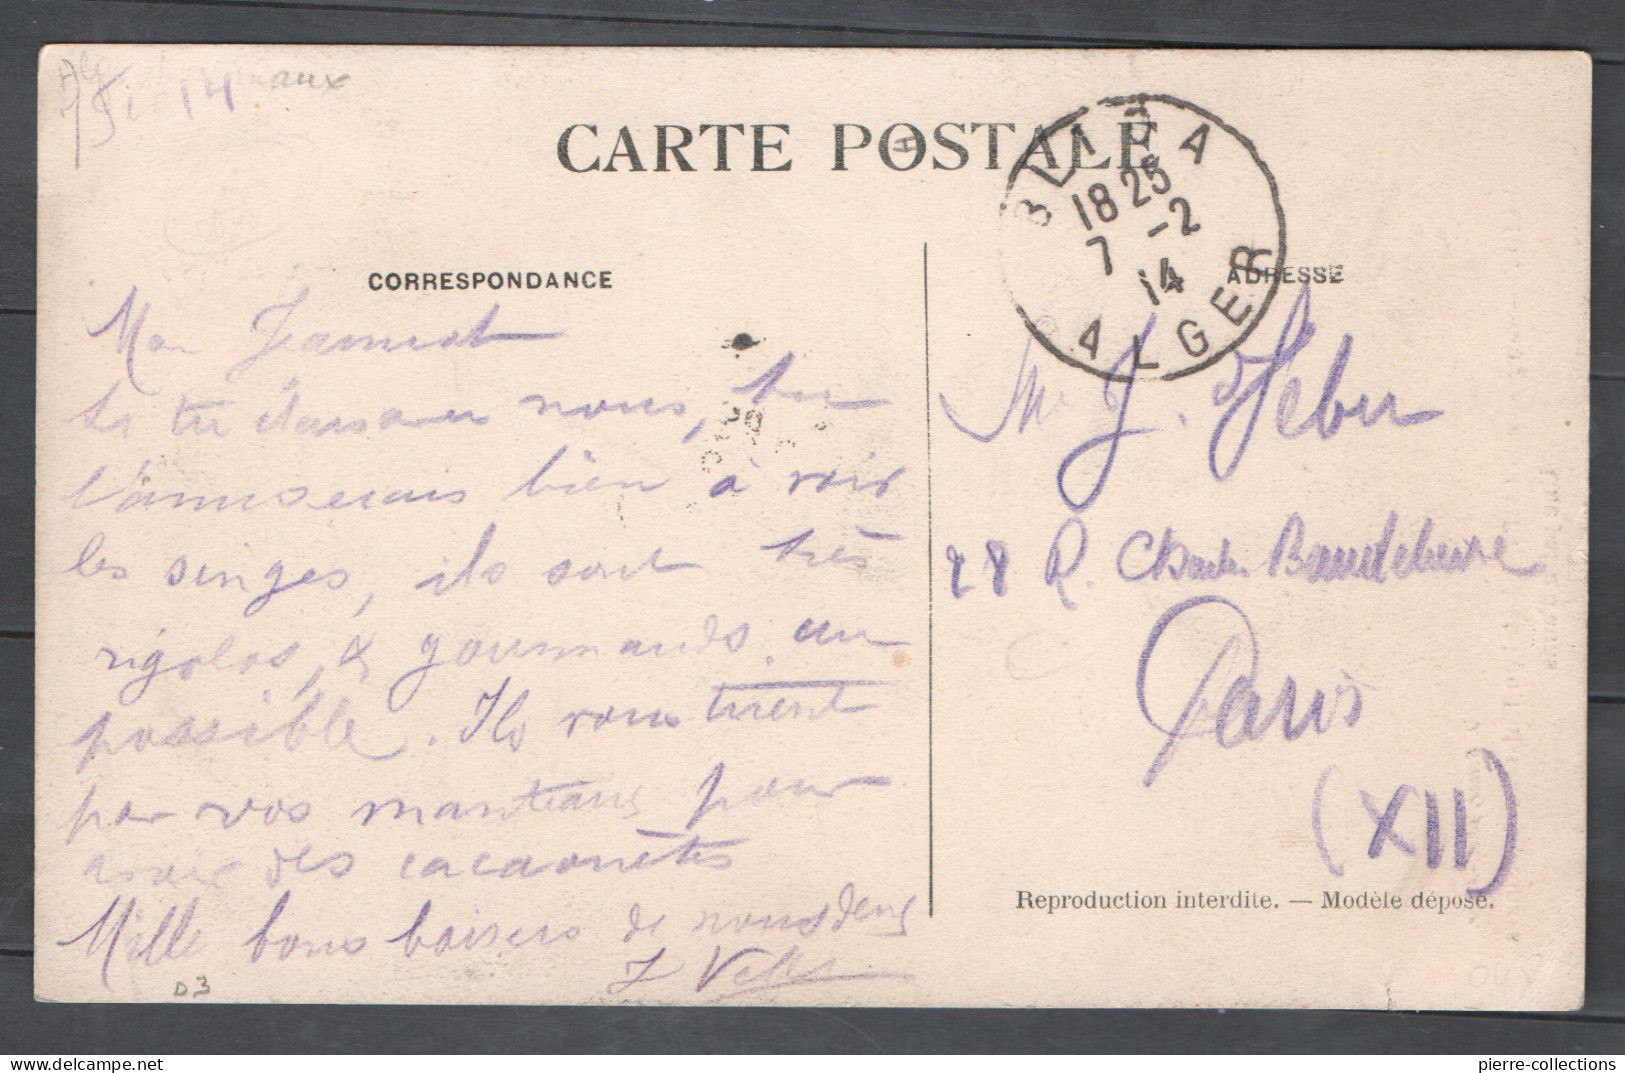 CARTE POSTALE
BLIDA
18 25
7 -2
14
ALGER
CORRESPONDANCE
ADRESSE
Mon Jeannot
Si tu étais avec nous, tu
t'amuserais bien à voir
les singes, ils sont très
rigolos, & gourmands, au
possible. Ils vous tirent
par vos manteaux pour
avoir des cacaouètes
Mille bons baisers de nous deux
Mr J.
28 R. Charles Baudelaire
Paris
(XII)
Reproduction interdite. — Modèle déposé.
D3
pierre-collections